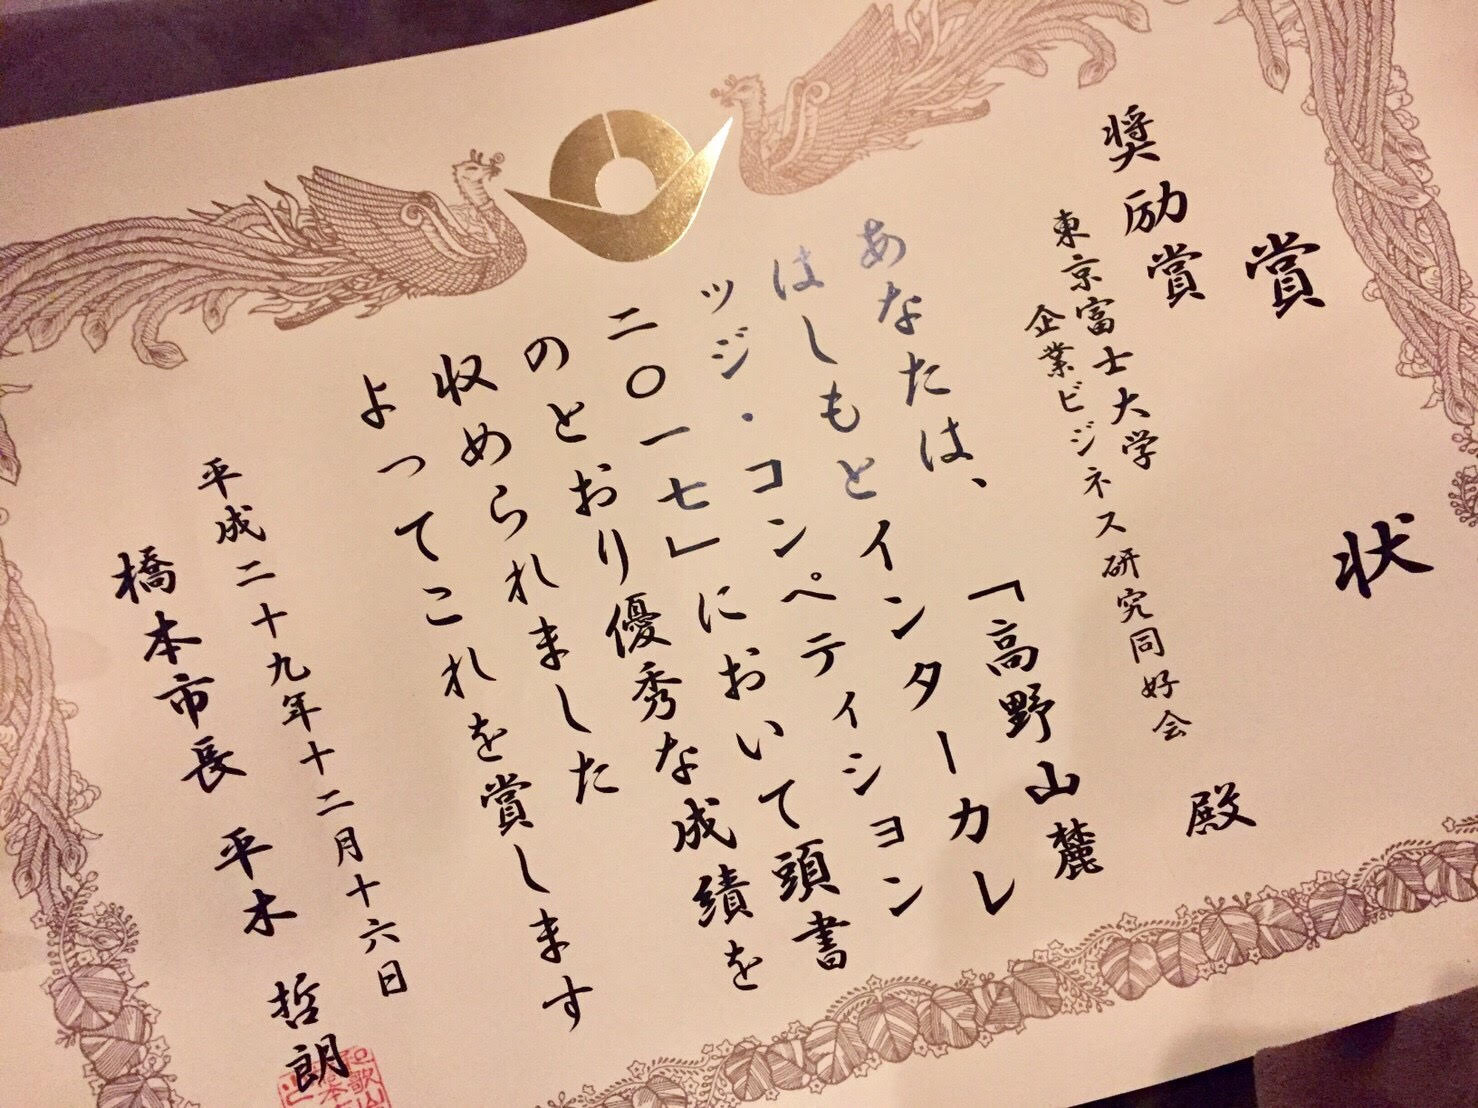 賞状
奨励賞
東京富士大学
企業ビジネス研究同好会
殿
あなたは、「高野山麓
はしもとインターカレ
ッジ・コンペティション
二〇一七」において頭書
のとおり優秀な成績を
収められました
よってこれを賞します
平成二十九年十二月十六日
橋本市長 平木 哲朗